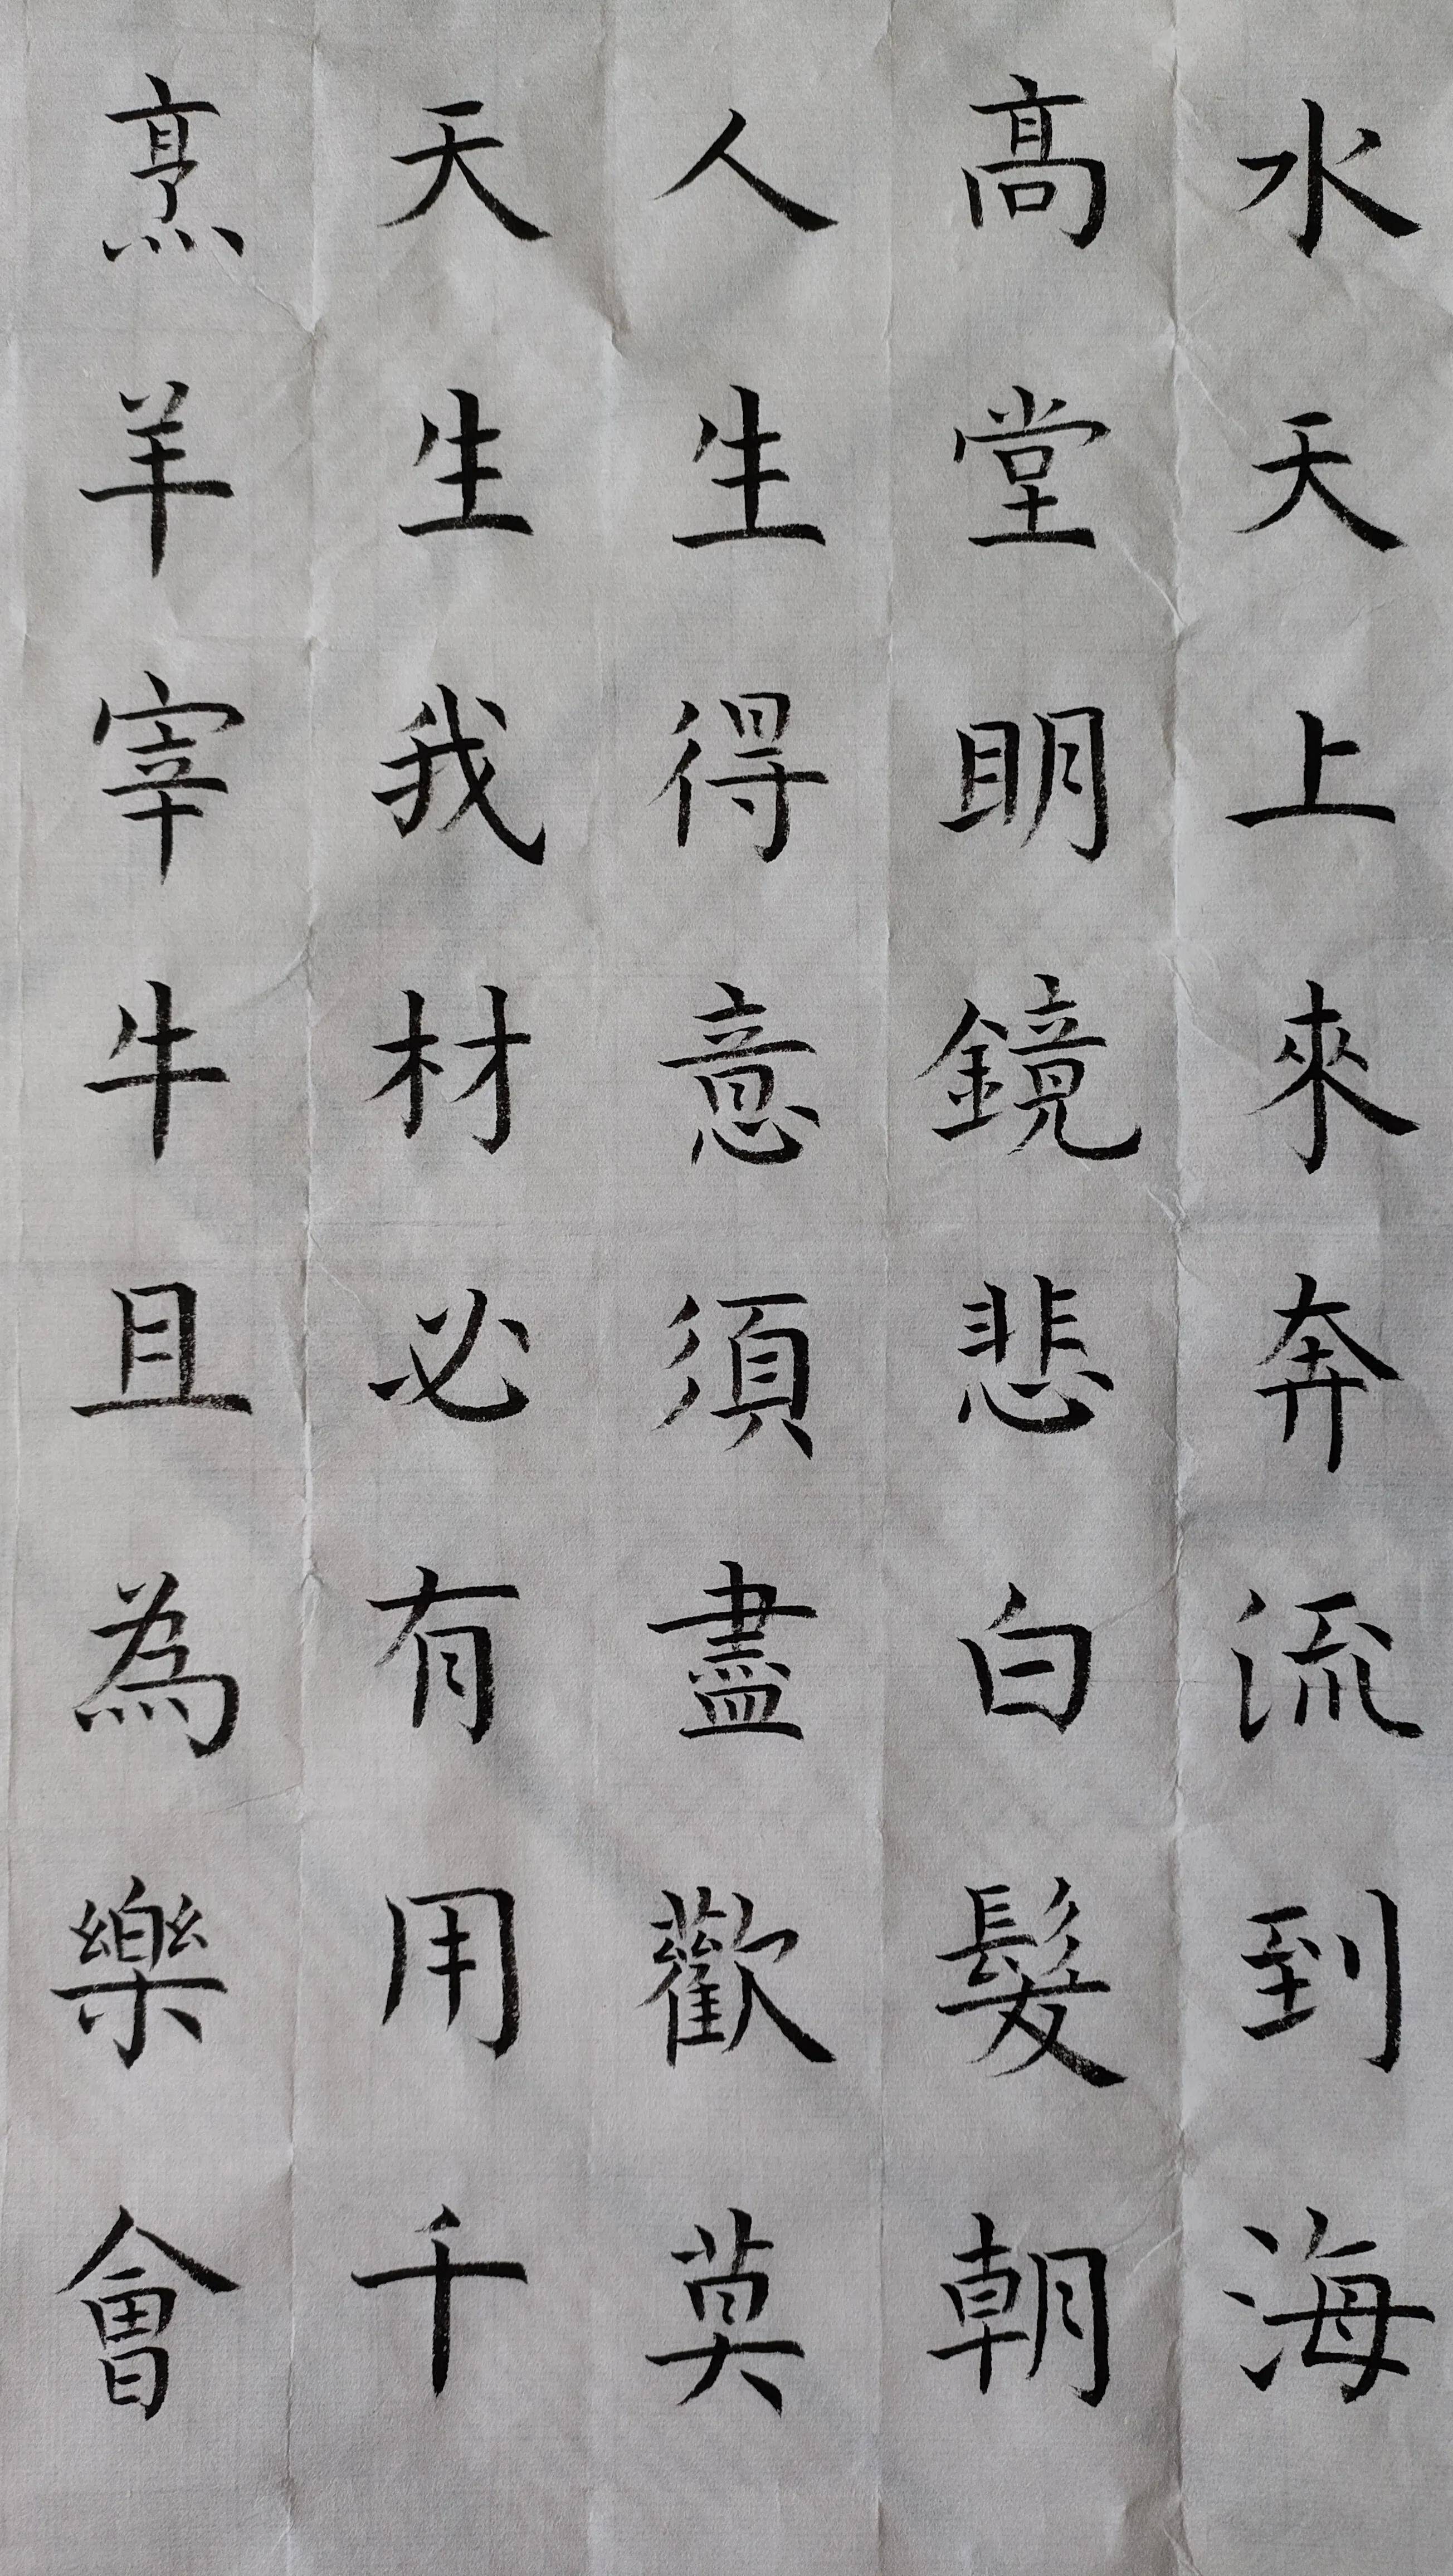 水天上來奔流到海
高堂明鏡悲白髮朝
人生得意須盡歡莫
天生我材必有用千
烹羊宰牛且為樂會